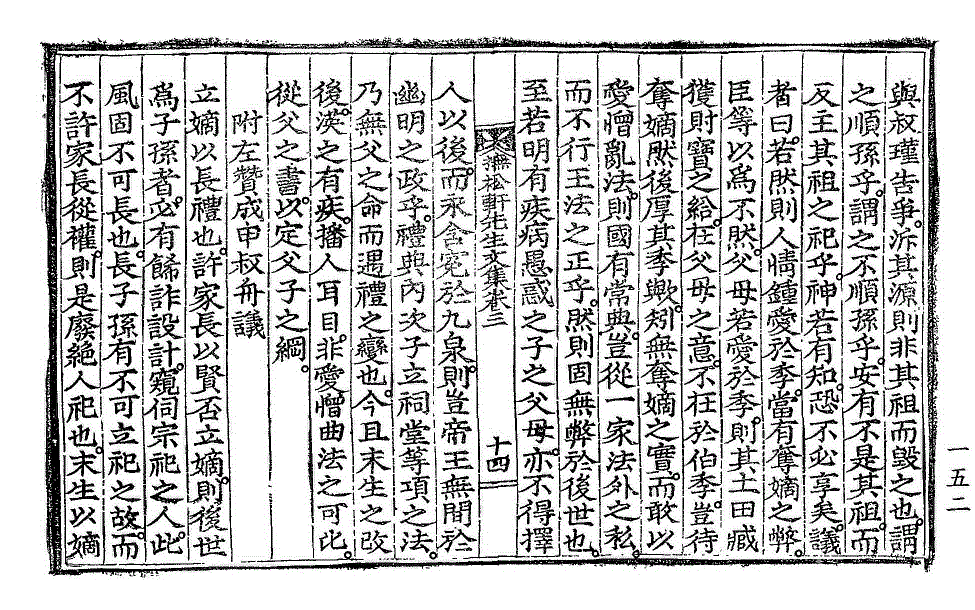 與叔瑾告爭。泝其源則非其祖而毁之也。謂
之順孫乎。謂之不順孫乎。安有不是其祖。而
反主其祖之祀乎。神若有知。恐不必享矣。議
者曰。若然則人情鍾愛於季。當有奪嫡之弊。
臣等以爲不然。父母若愛於季。則其土田臧
獲財寶之給。在父母之意。不在於伯季。豈待
奪嫡然後厚其季歟。矧無奪嫡之實。而敢以
愛憎亂法。則國有常典。豈從一家法外之私。
而不行王法之正乎。然則固無弊於後世也。
至若明有疾病愚惑之子之父母。亦不得擇
撫松軒先生文集卷三
十四
人以後。而永含寃於九泉。則豈帝王無間於
幽明之政乎。禮典內次子立祠堂等項之法。
乃無父之命而遇禮之變也。今且末生之改
後。渶之有疾。播人耳目。非愛憎曲法之可比。
從父之書。以定父子之綱。
附左贊成申叔舟議
立嫡以長禮也。許家長以賢否立嫡。則後世
爲子孫者。必有餙詐設計。窺伺宗祀之人。此
風固不可長也。長子孫有不可立祀之故。而
不許家長從權。則是廢絶人祀也。末生以嫡
一五二